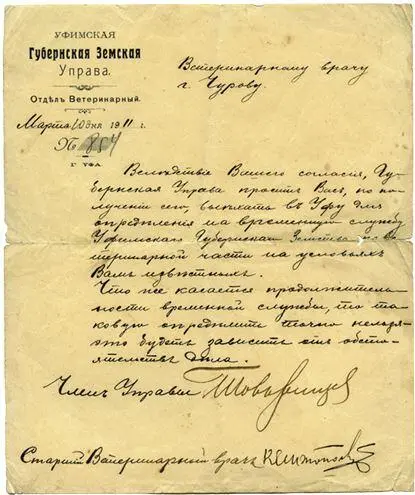 УФИМСКАЯ
Губернская Земская
Управа.
Отдѣлъ Ветеринарный.
Марта 10 дня 1911 г.
№ 854
Г. УФА.
Ветеринарному врачу
г. Чурову.
Вслѣдствіе Вашего согласія, Гу-
бернская Управа проситъ Васъ, по по-
лученіи сего, выѣхать въ Уфу для
опредѣленія на временную службу
Уфимскаго Губернскаго Земства по Ве-
теринарной части на условіяхъ
Вамъ извѣстныхъ.
Что же касается продолжитель-
ности временной службы, то та-
ковую опредѣлить точно нельзя-
это будетъ зависить отъ обсто-
ятельствъ дѣла.
Членъ Управы
Старшій Ветеринарный врачъ